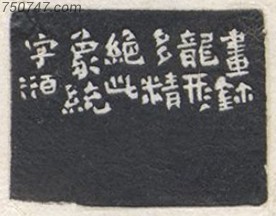 750747.com
畫鉨
龍形
多精
絕此
象統
字酒